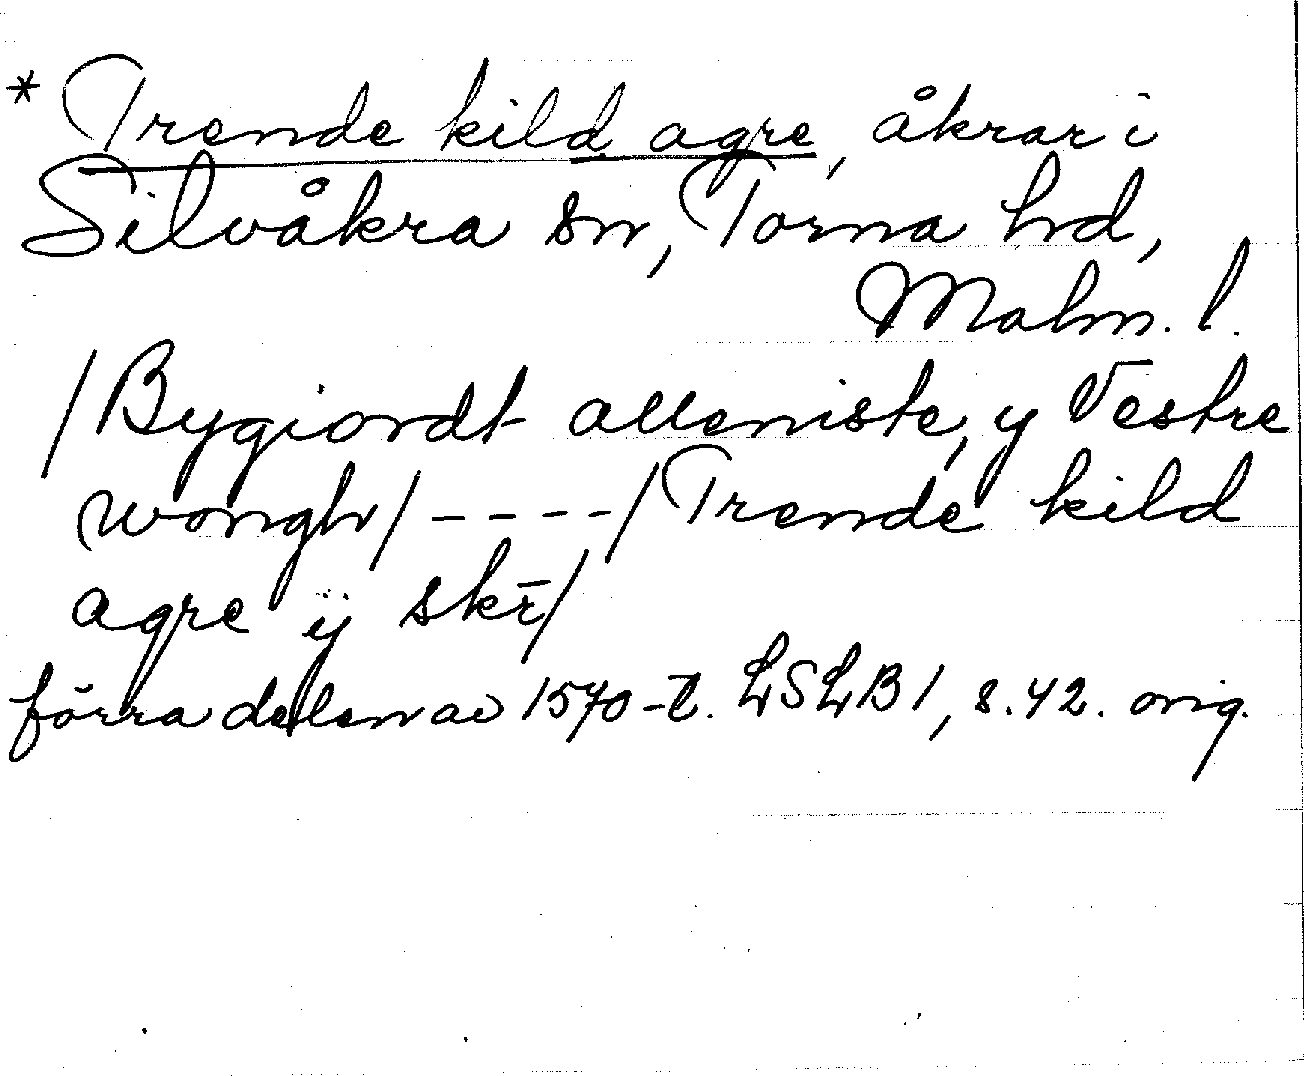 * Trende kild agre, åkrar i
Silvåkra sn, Torna hd,
Malm. l.
/Bygiordt alleniste, y Vestre
wongh/ ----/Trende kild
agre ÿ skr̄/
förra delen av 1570-t. LSLB 1, s. 42. orig.